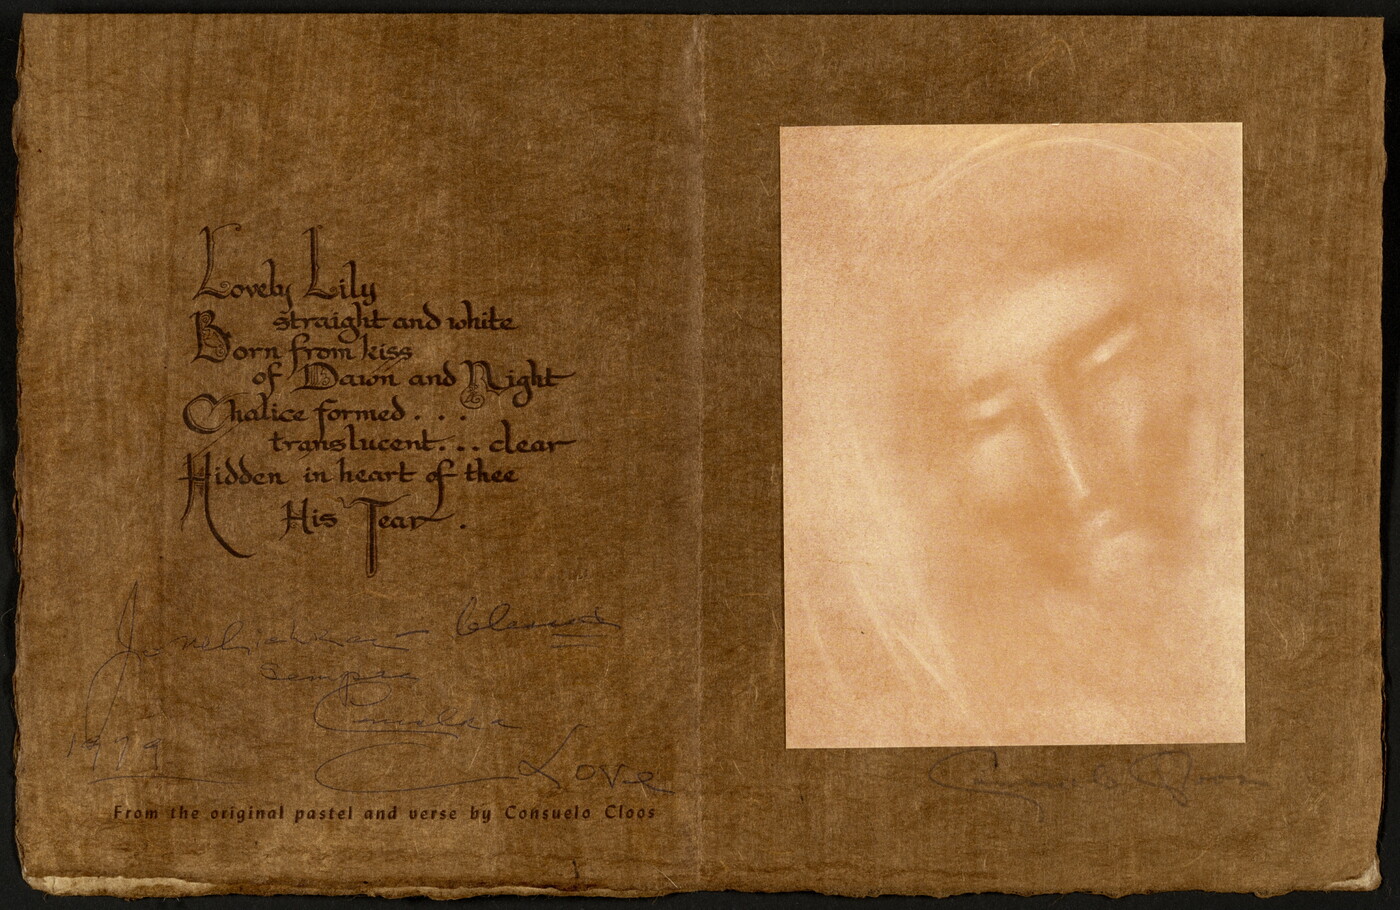 Lovely Lily
straight and white
Born from kiss
of Dawn and Night
Chalice formed . . .
translucent... clear
Hidden in heart of thee
His Tear .
1979
Love
From the original pastel and verse by Consuelo Cloos
Consuelo Cloos